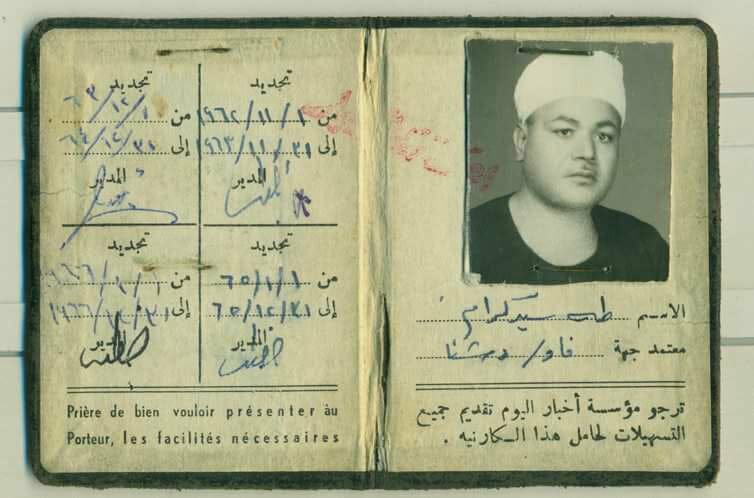 الاسم طه سيد كرام
معتمد جهة فاو / دشنا
ترجو مؤسسة أخبار اليوم تقديم جميع
التسهيلات لحامل هذا الكارنيه .
تجديد
من ١ / ١١ / ١٩٦٢
إلى ٣١ / ١ / ١٩٦٣
المدير
تجديد
من ١ / ١٢ / ٦٣
إلى ٣١ / ١٢ / ٦٤
المدير
تجديد
من ١ / ١ / ٦٥
إلى ٣١ / ١٢ / ٦٥
المدير
تجديد
من ١ / ١ / ١٩٦٦
إلى ٣١ / ١٢ / ١٩٦٦
المدير
Prière de bien vouloir présenter au
Porteur, les facilités nécessaires